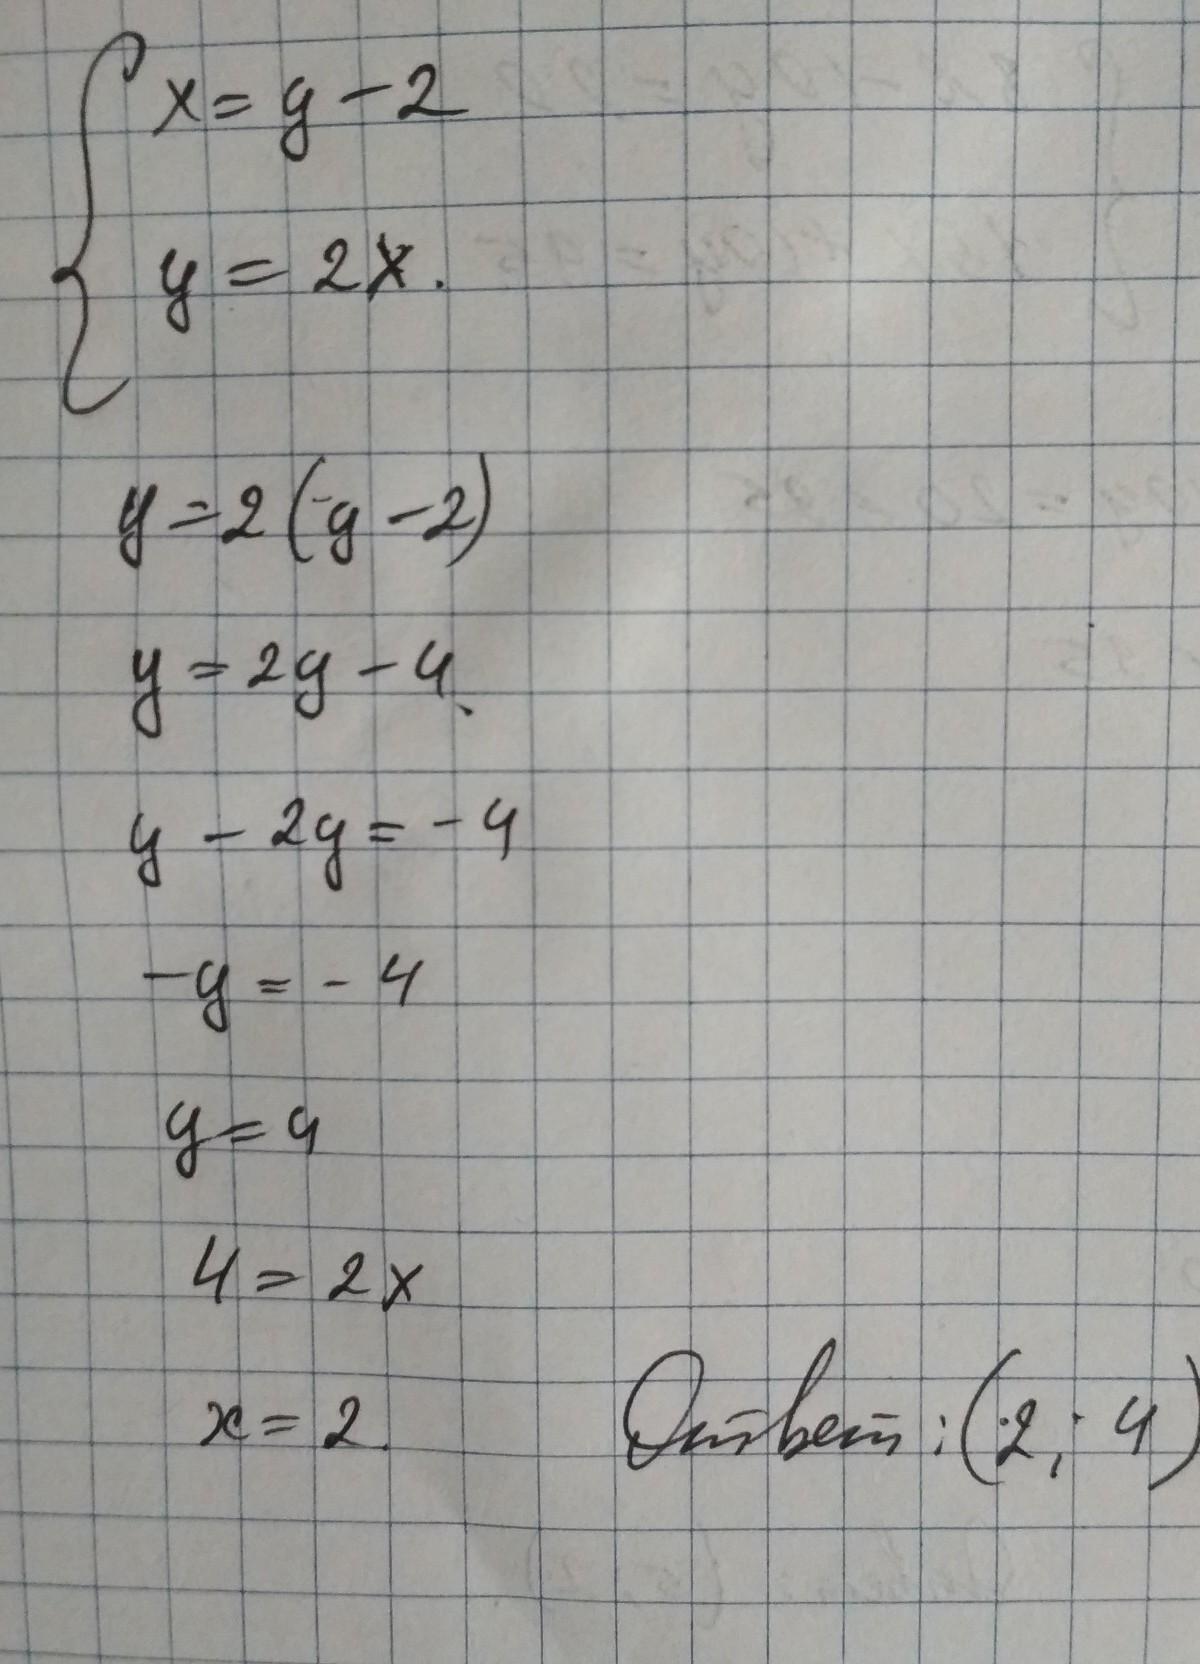 x = y - 2
y = 2x.
y = 2(-y - 2)
y = 2y - 4.
y - 2y = -4
-y = -4
y = 4
4 = 2x
x = 2.
Ответ: (2; 4)